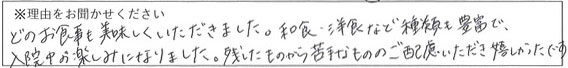 ※理由をお聞かせください
どのお食事も美味しくいただきました。和食・洋食など種類も豊富で、
入院中お楽しみになりました。残したものから苦手なもののご配慮いただき嬉しかったです